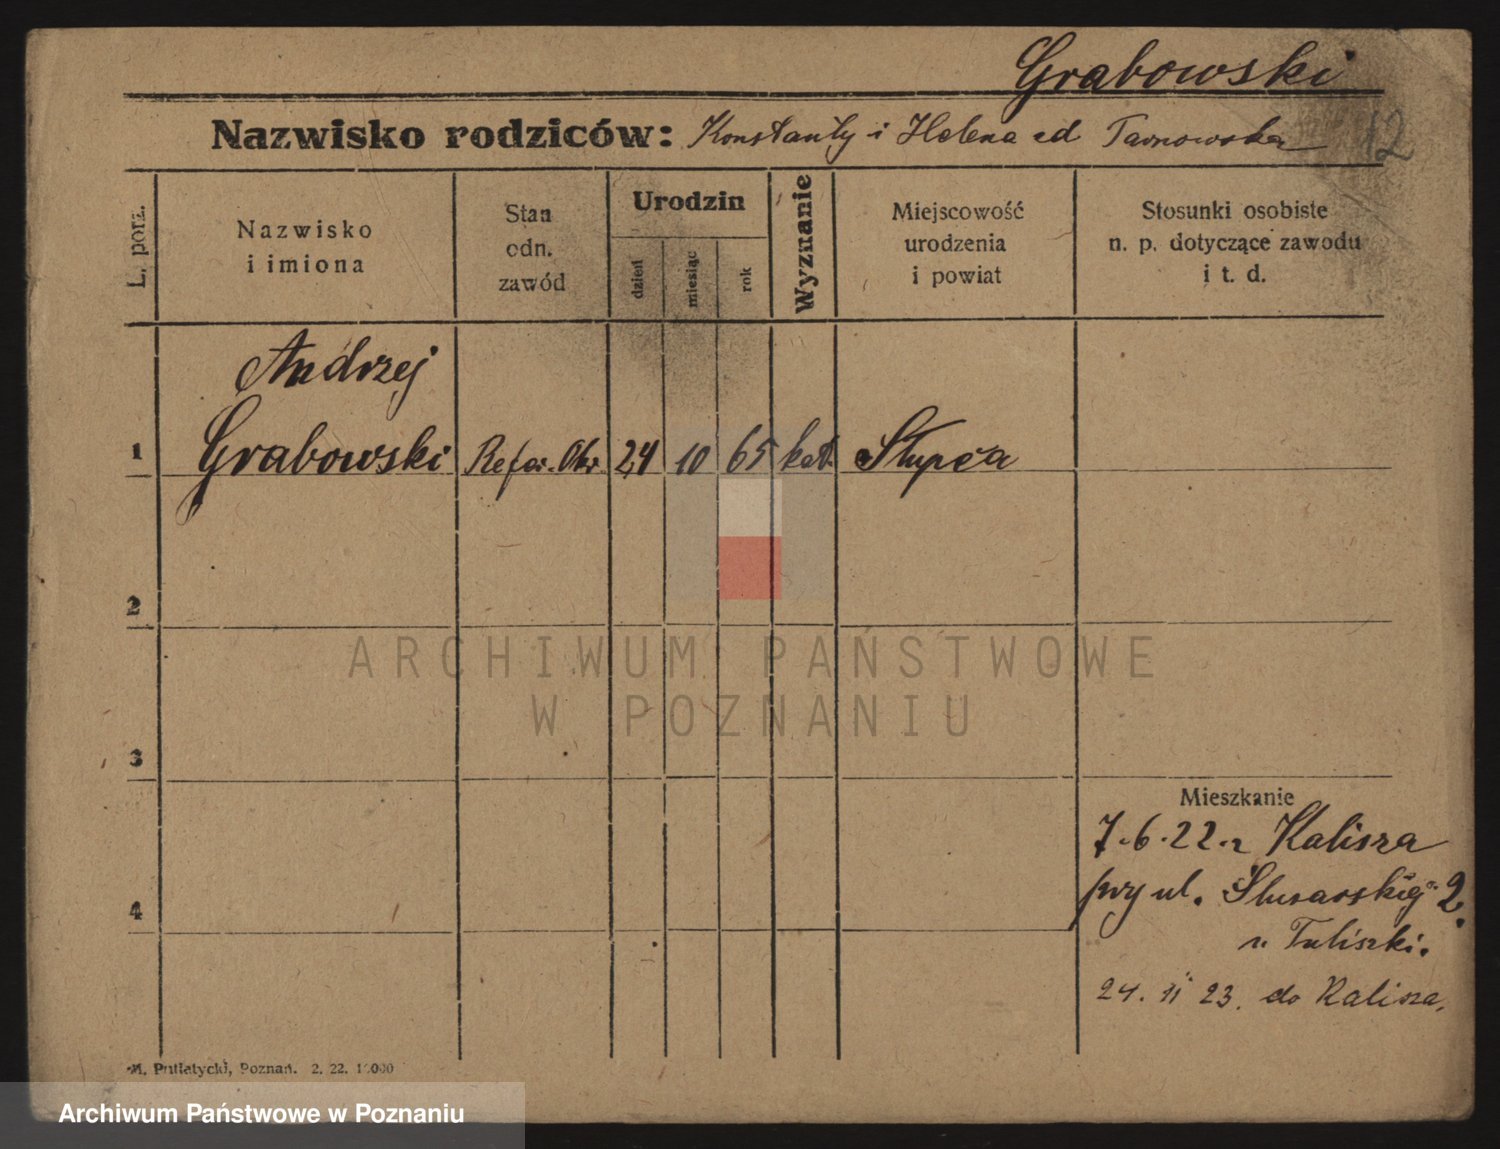 Grabowski
Nazwisko rodziców: Konstanty i Helena zd Tarnowska 12
L. porz.
Nazwisko
i imiona
Stan
odn.
zawód
Urodzin
dzień
miesiąc
rok
Wyznanie
Miejscowość
urodzenia
i powiat
Stosunki osobiste
n. p. dotyczące zawodu
i t. d.
Andrzej
1 Grabowski Refer. 24 10 65 kat. Słupca
2
ARCHIWUM PAŃSTWOWE
W POZNANIU
3
Mieszkanie
7.6.22. z Kalisza
przy ul. 2.
u Tuliszki.
4
24. 11 23. do Kalisza.
M. Putiatycki, Poznań. 2. 22.
Archiwum Państwowe w Poznaniu